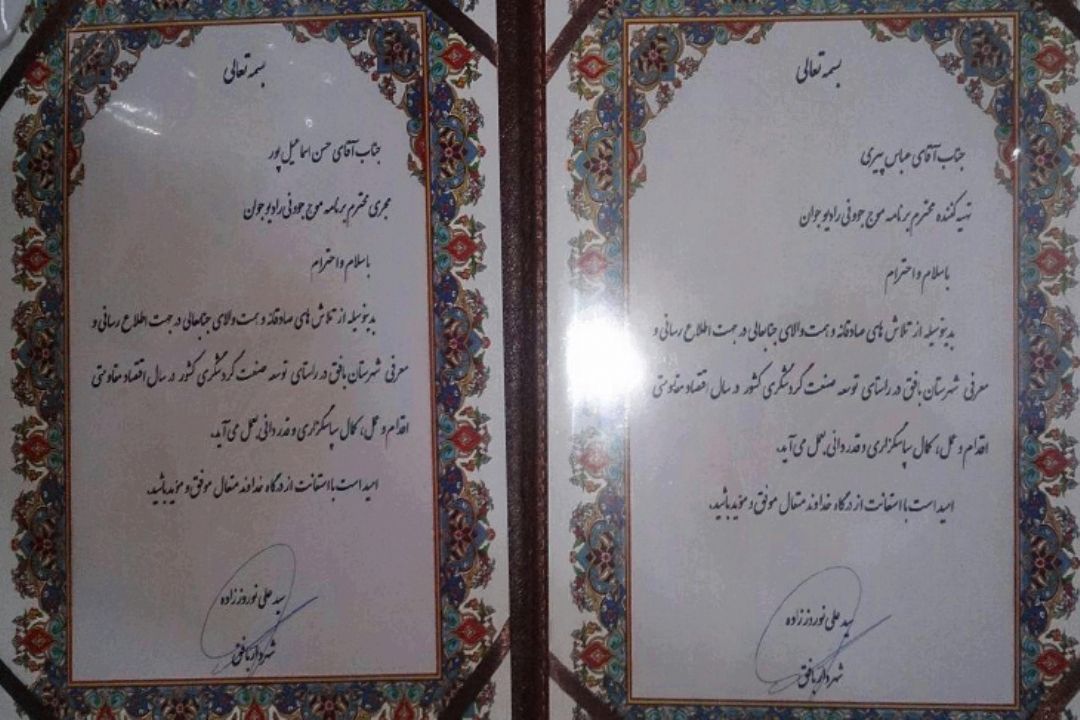 بسمه تعالی
جناب آقای عباس پیری
تهیه کننده محترم برنامه موج جوونی رادیو جوان
باسلام و احترام
بدینوسیله از تلاش های صادقانه و همت والای جنابعالی در جهت اطلاع رسانی و
معرفی شهرستان بافق در راستای توسعه صنعت گردشگری کشور در سال اقتصاد مقاومتی
اقدام و عمل، کمال سپاسگزاری و قدردانی بعمل می آید.
امید است با استعانت از درگاه خداوند متعال موفق و موید باشید.
سید علی نوروززاده
شهردار بافق
بسمه تعالی
جناب آقای حسن اسماعیل پور
مجری محترم برنامه موج جوونی رادیو جوان
باسلام و احترام
بدینوسیله از تلاش های صادقانه و همت والای جنابعالی در جهت اطلاع رسانی و
معرفی شهرستان بافق در راستای توسعه صنعت گردشگری کشور در سال اقتصاد مقاومتی
اقدام و عمل، کمال سپاسگزاری و قدردانی بعمل می آید.
امید است با استعانت از درگاه خداوند متعال موفق و موید باشید.
سید علی نوروززاده
شهردار بافق